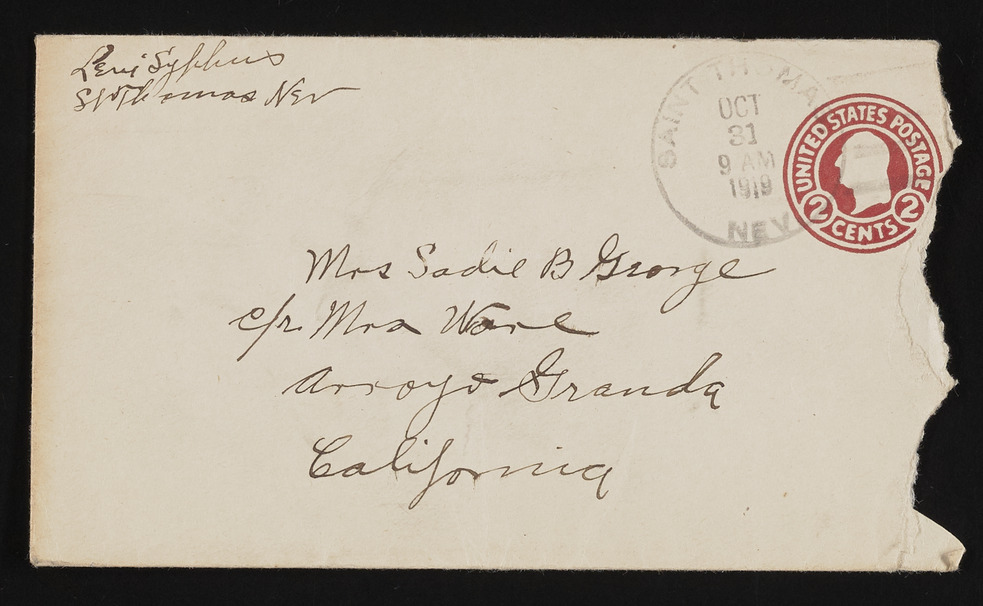 Levi Syphus
St Thomas Nev
SAINT THOMA
OCT
31
9 AM
1919
NEV
UNITED STATES POSTAGE
2 CENTS 2
Mrs Sadie B George
c/r. Mrs Ware
Arroyo Granda
California